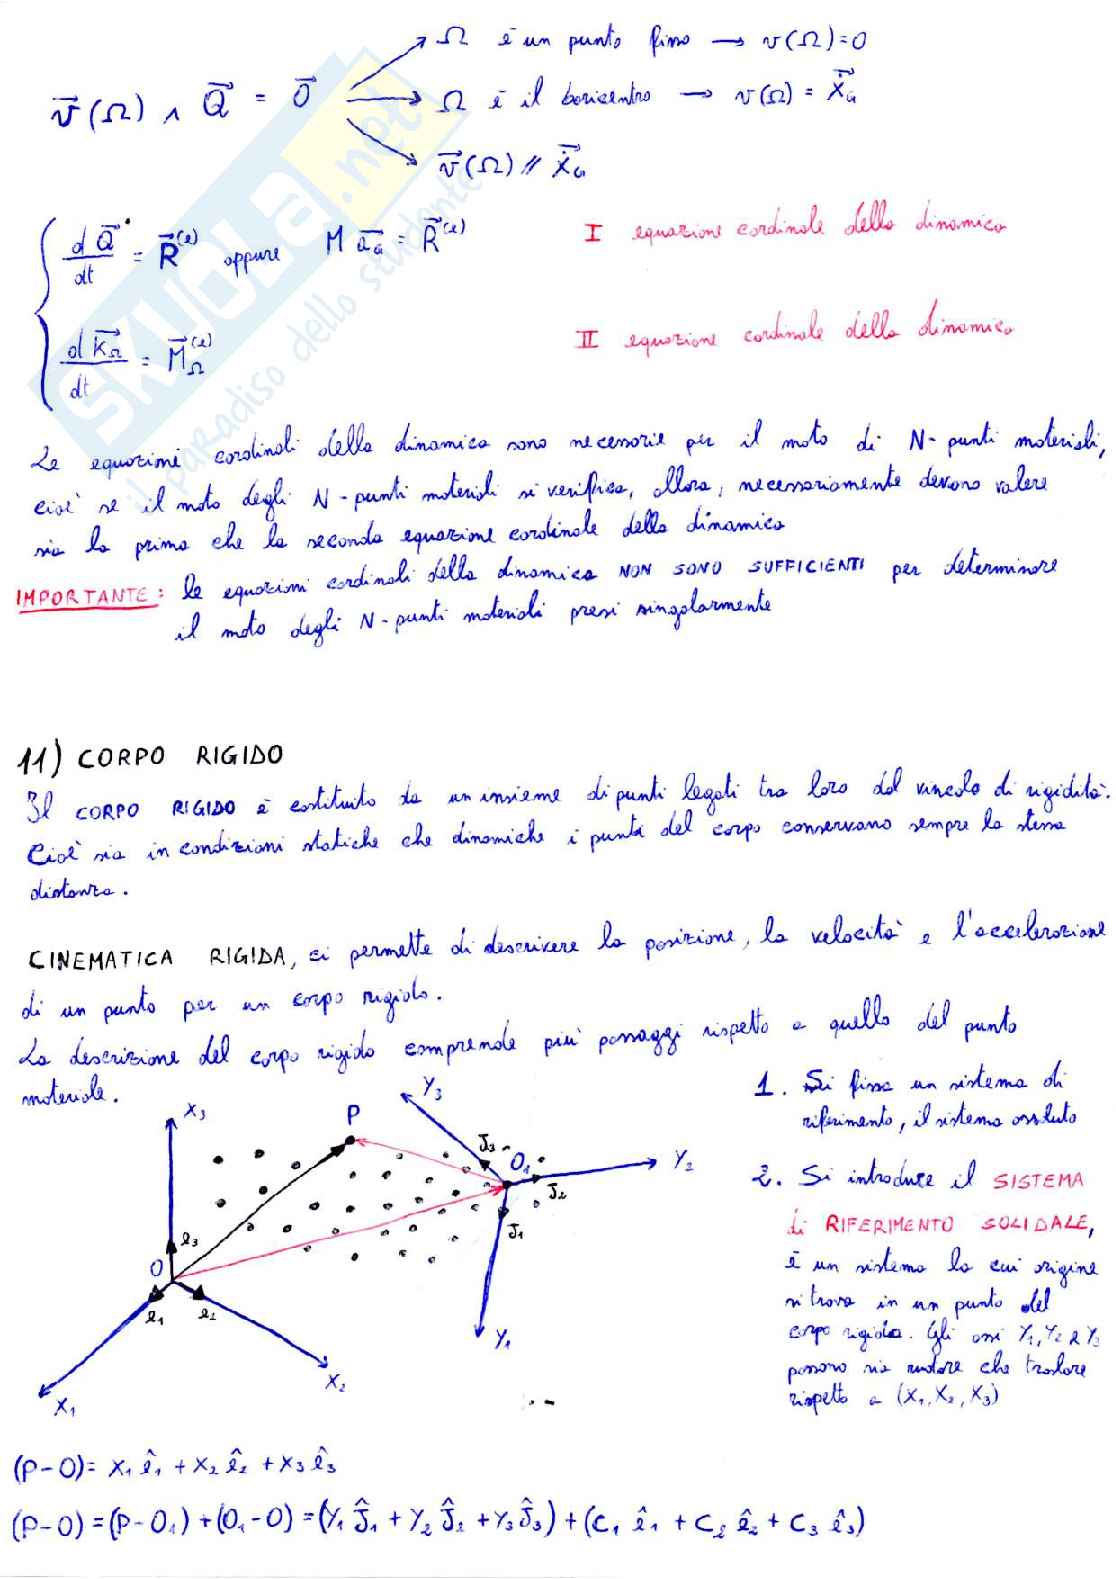 Ω è un punto fisso → v(Ω)=0
v⃗(Ω) ∧ Q⃗ = 0⃗
Ω è il baricentro → v(Ω) = ẋ⃗_G
v⃗(Ω) // ẋ⃗_G
dQ⃗/dt = R⃗^(e) oppure M a⃗_G = R⃗^(e)
I equazione cardinale della dinamica
dk⃗_Ω/dt = M⃗_Ω^(e)
II equazione cardinale della dinamica
Le equazioni cardinali della dinamica sono necessarie per il moto di N-punti materiali,
cioè se il moto degli N-punti materiali si verifica, allora, necessariamente devono valere
sia la prima che la seconda equazione cardinale della dinamica
IMPORTANTE: le equazioni cardinali della dinamica NON SONO SUFFICIENTI per determinare
il moto degli N-punti materiali presi singolarmente
SKUOLA.net
il paradiso dello studente
11) CORPO RIGIDO
Il CORPO RIGIDO è costituito da un insieme di punti legati tra loro dal vincolo di rigidità.
Cioè sia in condizioni statiche che dinamiche i punti del corpo conservano sempre la stessa
distanza.
CINEMATICA RIGIDA, ci permette di descrivere la posizione, la velocità e l'accelerazione
di un punto per un corpo rigido.
La descrizione del corpo rigido comprende più passaggi rispetto a quello del punto
materiale.
X₃
P
Y₃
J₃
O₁
Y₂
J₂
J₁
e₃
O
e₁
e₂
Y₁
X₂
X₁
1. Si fissa un sistema di
riferimento, il sistema assoluto
2. Si introduce il SISTEMA
di RIFERIMENTO SOLIDALE,
è un sistema la cui origine
si trova in un punto del
corpo rigido. Gli assi Y₁, Y₂ e Y₃
possono sia ruotare che traslare
rispetto a (X₁, X₂, X₃)
(P-O)= X₁ ê₁ + X₂ ê₂ + X₃ ê₃
(P-O) = (P-O₁) + (O₁-O) = (Y₁ Ĵ₁ + Y₂ Ĵ₂ + Y₃ Ĵ₃) + (C₁ ê₁ + C₂ ê₂ + C₃ ê₃)